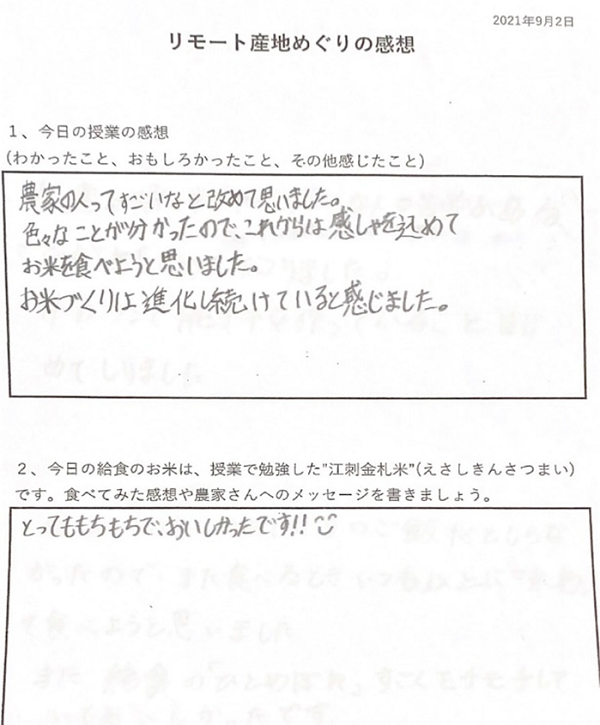 2021年9月2日
リモート産地めぐりの感想
1、今日の授業の感想
(わかったこと、おもしろかったこと、その他感じたこと)
農家の人ってすごいなと改めて思いました。
色々なことが分かったので、これからは感しゃを込めて
お米を食べようと思いました。
お米づくりは進化し続けていると感じました。
2、今日の給食のお米は、授業で勉強した"江刺金札米"(えさしきんさつまい)
です。食べてみた感想や農家さんへのメッセージを書きましょう。
とってももちもちで、おいしかったです!!